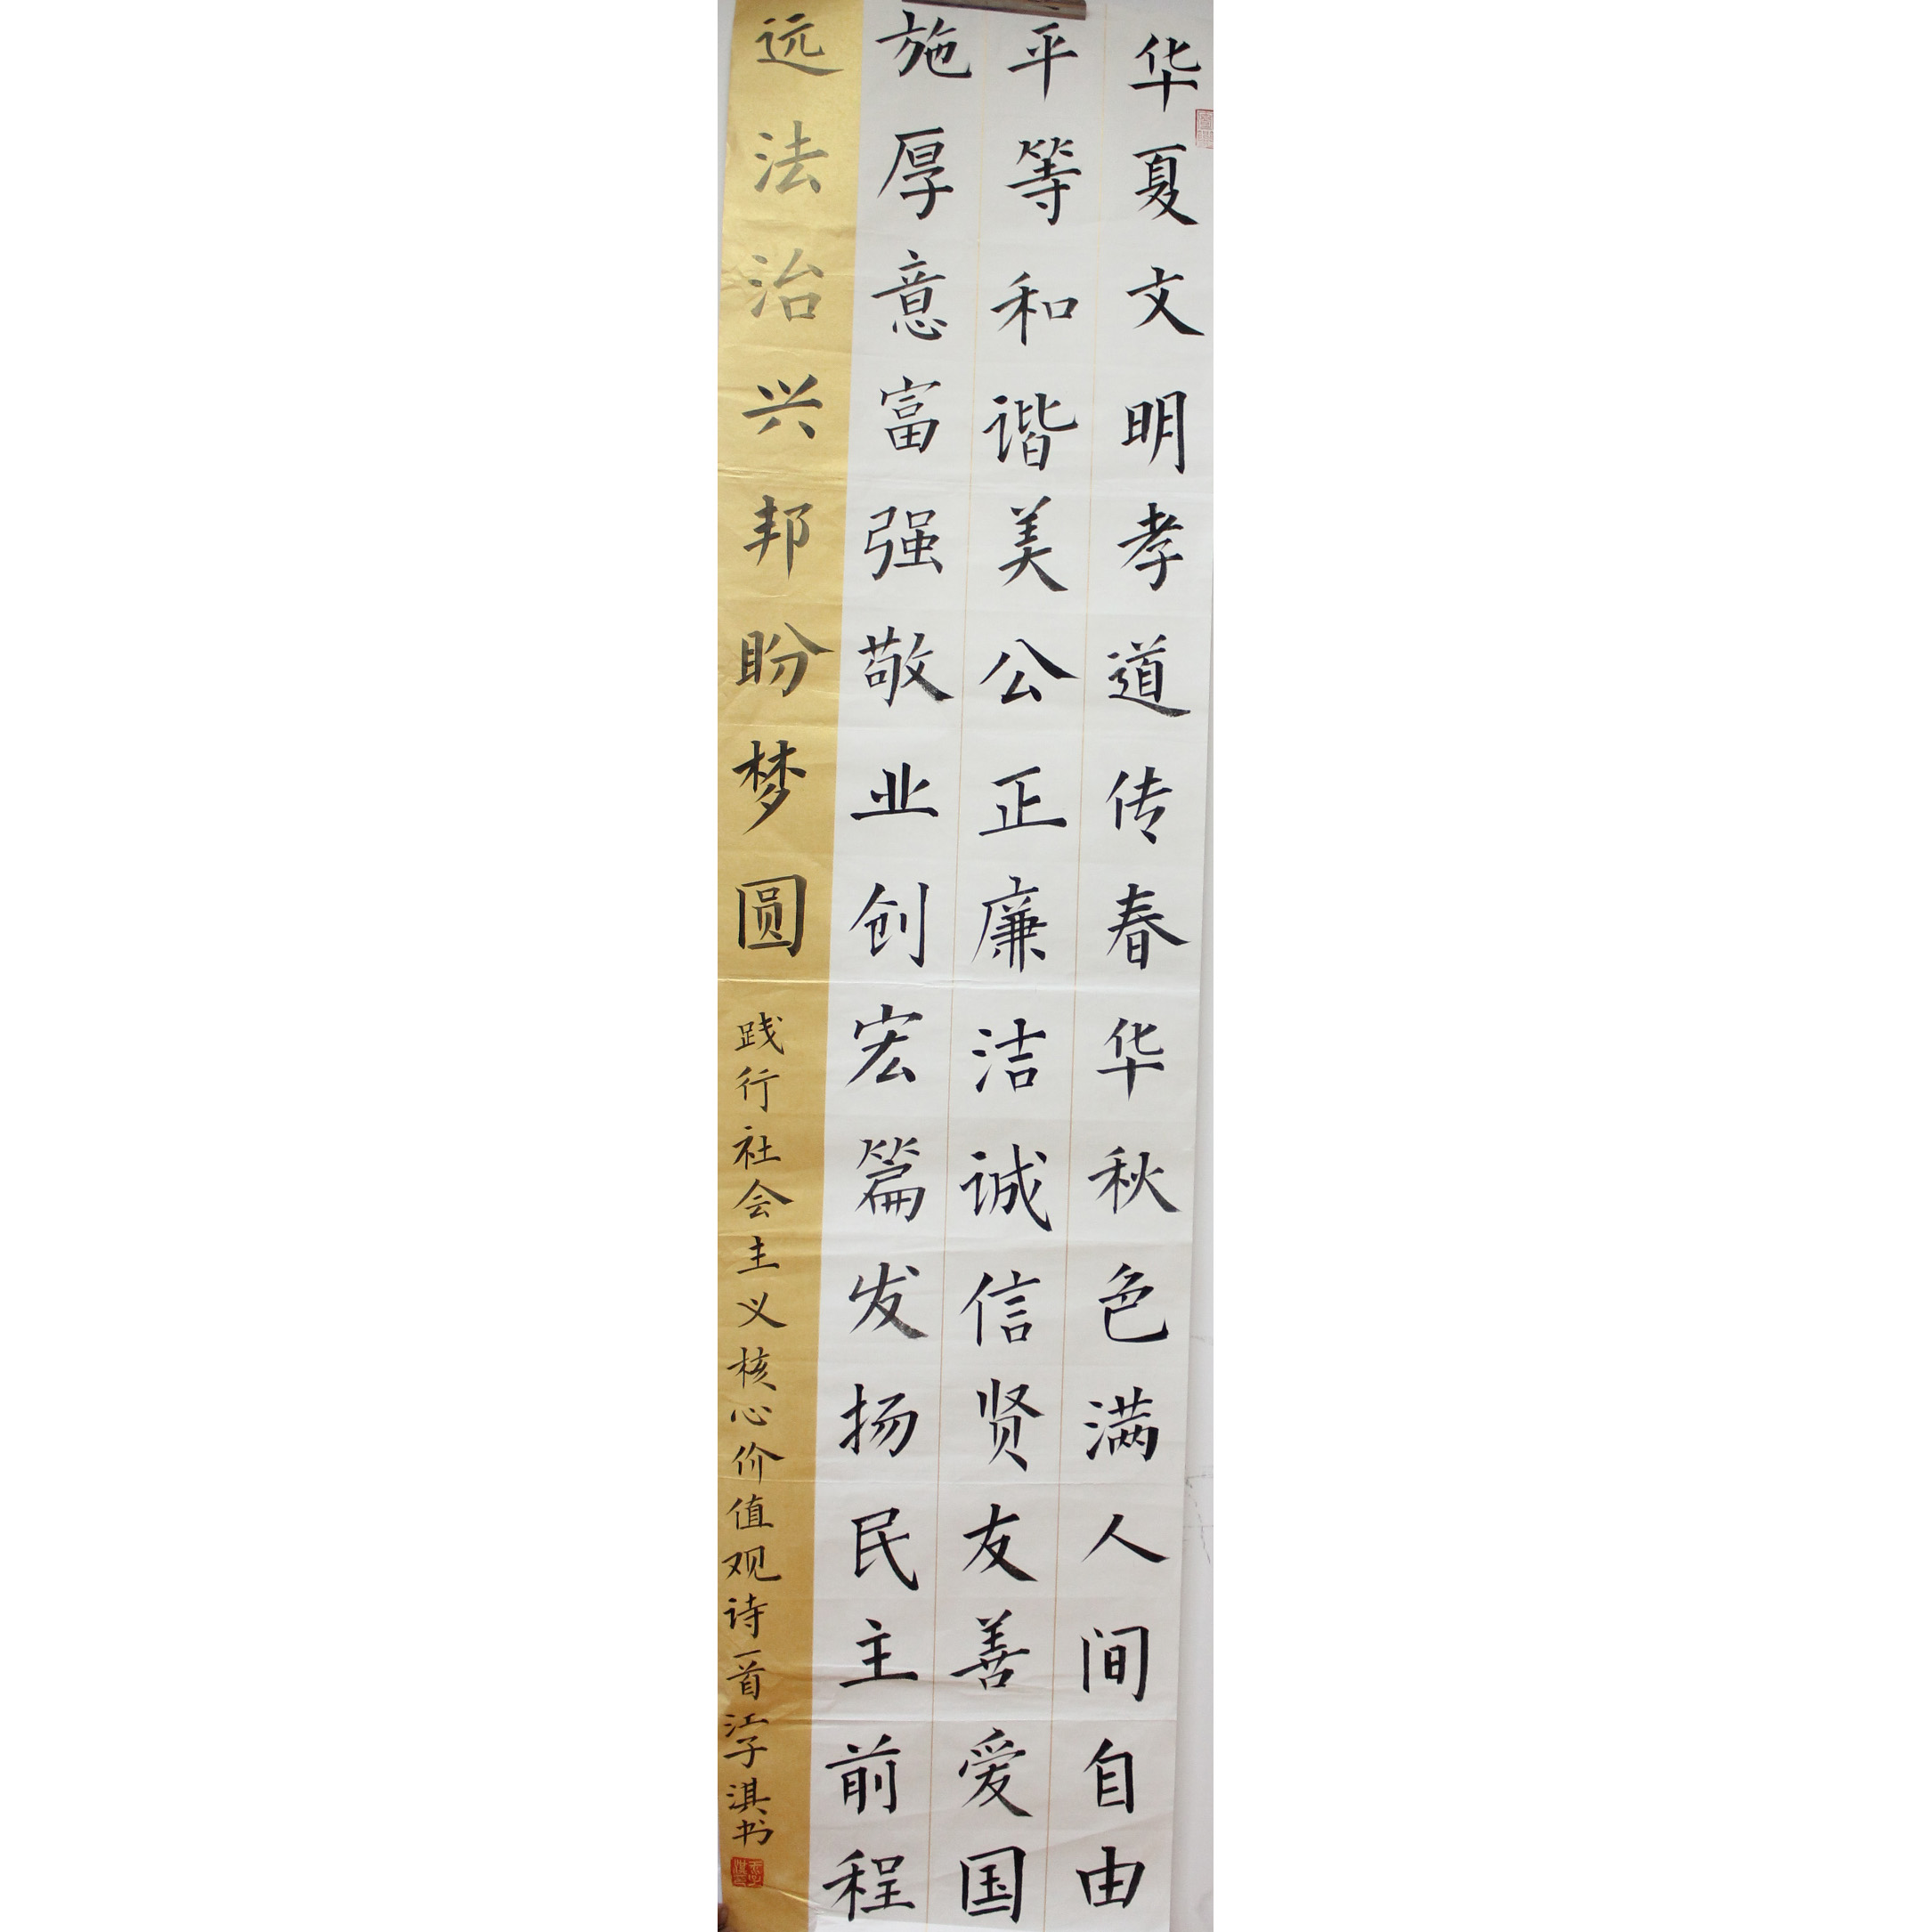 华夏文明孝道传春华秋色满人间自由
平等和谐美公正廉洁诚信贤友善爱国
施厚意富强敬业创宏篇发扬民主前程
远法治兴邦盼梦圆
践行社会主义核心价值观诗一首江子淇书